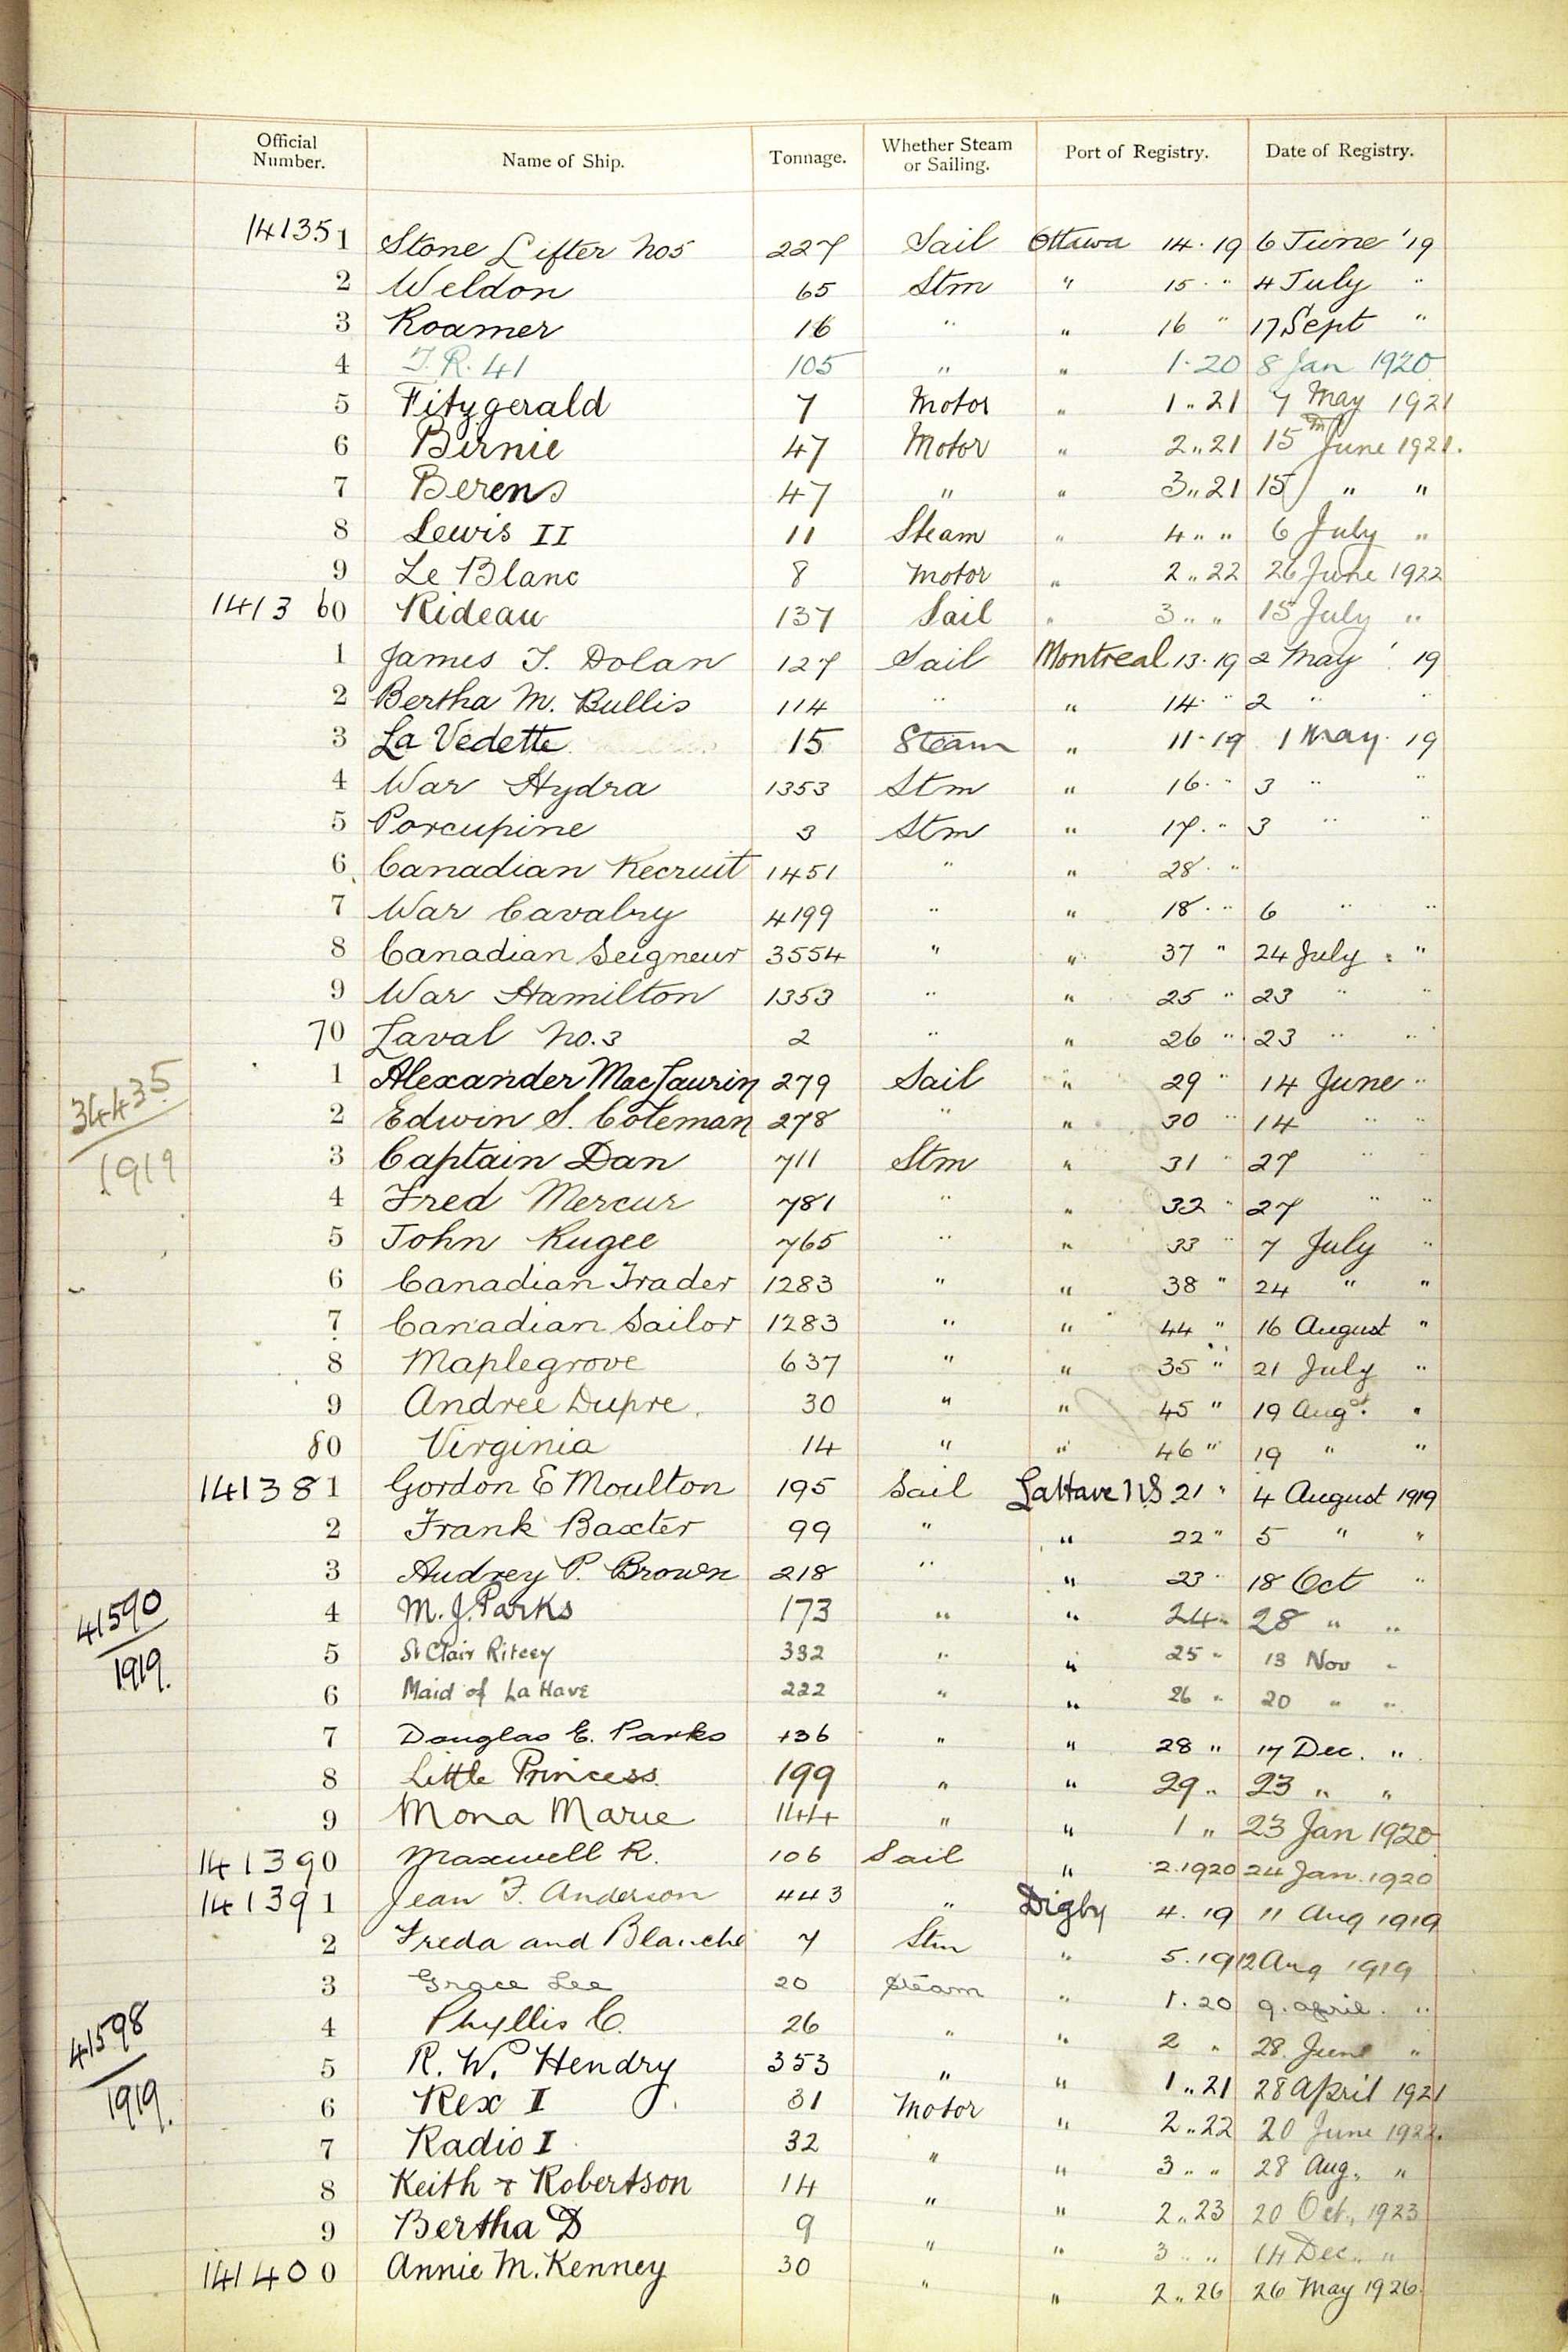 Official Number. Name of Ship. Tonnage. Whether Steam or Sailing. Port of Registry. Date of Registry.
141351 Stone Lifter No5 227 Sail Ottawa 14.19 6 June '19
2 Weldon 65 Stm " 15. " 4 July "
3 Roamer 16 " " 16 " 17 Sept "
4 T.R. 41 105 " " 1.20 8 Jan 1920
5 Fitzgerald 7 Motor " 1..21 7 May 1921
6 Birnie 47 Motor " 2..21 15th June 1921.
7 Berens 47 " " 3..21 15 " "
8 Lewis II 11 Steam " 4.. " 6 July "
9 Le Blanc 8 Motor " 2..22 26 June 1922
141360 Rideau 137 Sail " 3.. " 15 July "
1 James T. Dolan 127 Sail Montreal 13.19 2 May '19
2 Bertha M. Bullis 114 " " 14. " 2 " "
3 La Vedette 15 Steam " 11.19 1 May. 19
4 War Hydra 1353 Stm " 16. " 3 " "
5 Porcupine 3 Stm " 17. " 3 " "
6 Canadian Recruit 1451 " " 28. "
7 War Cavalry 4199 " " 18. " 6 " "
8 Canadian Seigneur 3554 " " 37 " 24 July "
9 War Hamilton 1353 " " 25 " 23 " "
70 Laval No.3 2 " " 26 " 23 " "
34435
1919
1 Alexander MacLaurin 279 Sail " 29 " 14 June "
2 Edwin S. Coleman 278 " " 30 " 14 " "
3 Captain Dan 711 Stm " 31 " 27 " "
4 Fred Mercur 781 " " 32 " 27 " "
5 John Rugee 765 " " 33 " 7 July "
6 Canadian Trader 1283 " " 38 " 24 " "
7 Canadian Sailor 1283 " " 44 " 16 August "
8 Maplegrove 637 " " 35 " 21 July "
9 Andree Dupre 30 " " 45 " 19 Augst. "
80 Virginia 14 " " 46 " 19 " "
141381 Gordon E Moulton 195 Sail LaHave NS 21 " 4 August 1919
2 Frank Baxter 99 " " 22 " 5 " "
3 Audrey P. Brown 218 " " 23 " 18 Oct "
41590
1919.
4 M. J. Parks 173 " " 24 " 28 " "
5 St Clair Ritcey 332 " " 25 " 13 Nov "
6 Maid of La Have 222 " " 26 " 20 " "
7 Douglas E. Parks 136 " " 28 " 17 Dec. "
8 Little Princess 199 " " 29 " 23 " "
9 Mona Marie 144 " " 1 " 23 Jan 1920
141390 Maxwell R. 106 Sail " 2.1920 24 Jan. 1920
141391 Jean F. Anderson 443 " Digby 4.19 11 Aug 1919
2 Freda and Blanche 7 Stm " 5.19 12 Aug 1919
3 Grace Lee 20 Steam " 1.20 9. April. "
41598
1919.
4 Phyllis C. 26 " " 2 " 28. June "
5 R. W. Hendry 353 " " 1..21 28 April 1921
6 Rex I 31 Motor " 2..22 20 June 1922.
7 Radio I 32 " " 3.. " 28 Aug. "
8 Keith & Robertson 14 " " 2..23 20 Oct., 1923
9 Bertha D 9 " " 3.. " 14 Dec. "
141400 Annie M. Kenney 30 " " 2..26 26 May 1926.